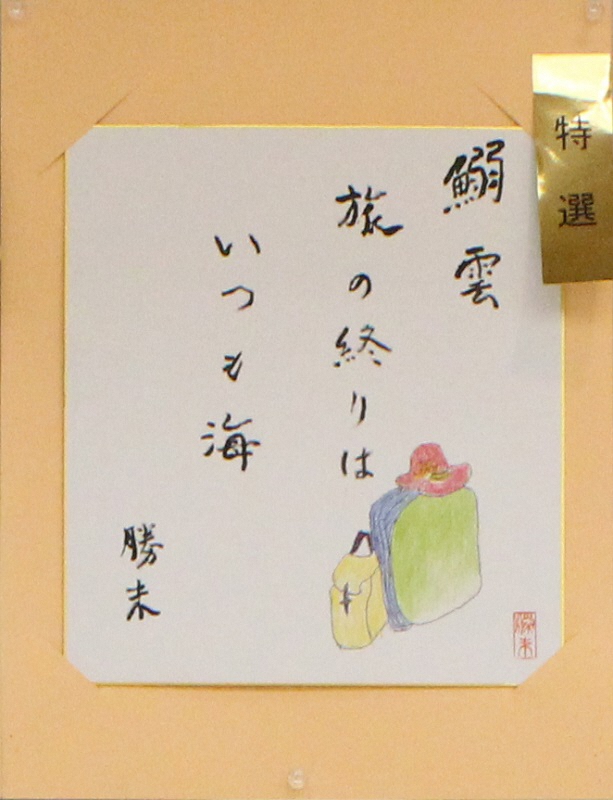 特選
鰯雲
旅の終りは
いつも海
勝未
勝未